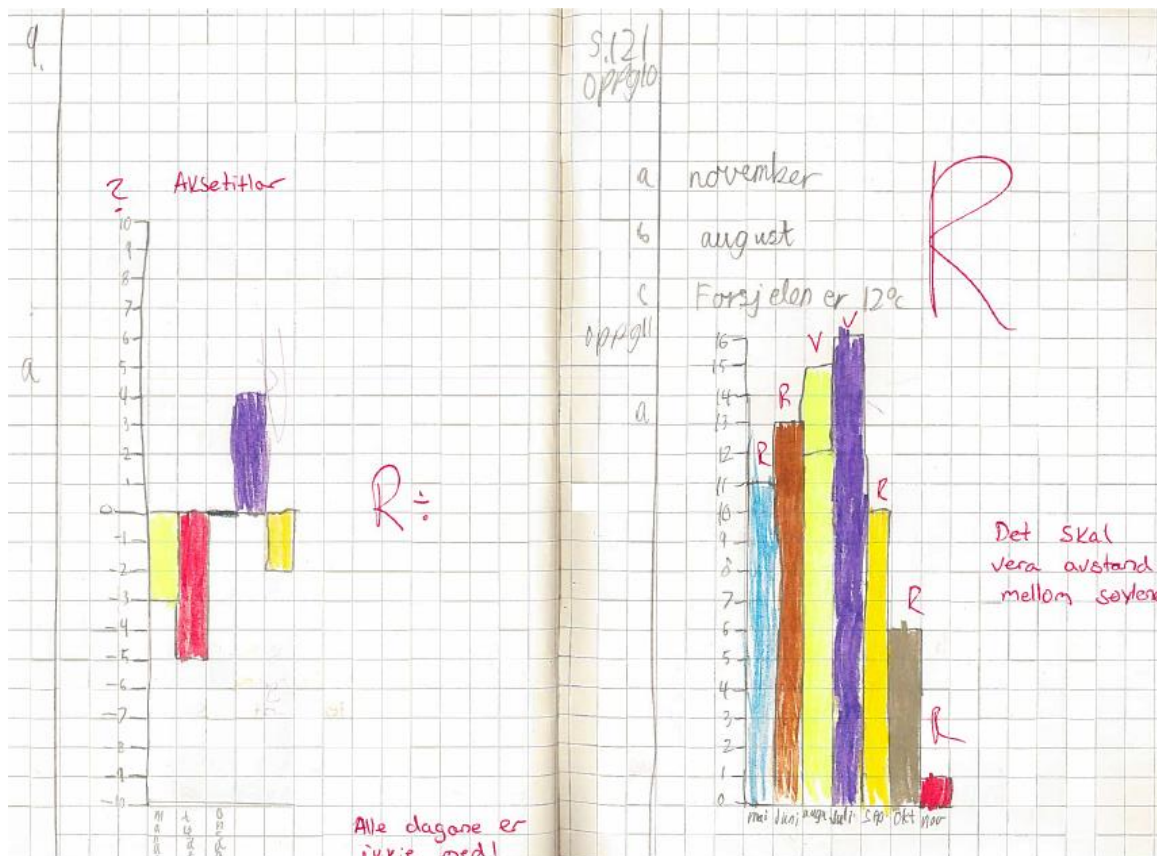 9.
? Aksetitlar
10
9
8
7
6
5
4
3
2
1
0
-1
-2
-3
-4
-5
-6
-7
-8
-9
-10
a
R ÷
Alle dagane er
ikkje med!
S.121
Oppg10
a november
b august
c Forsjelen er 12°c
R
oppg11
a
16
15
14
13
12
11
10
9
8
7
6
5
4
3
2
1
0
R R V V R R R
mai Juni augu Juli Sep Okt nov
Det skal
vera avstand
mellom søylene